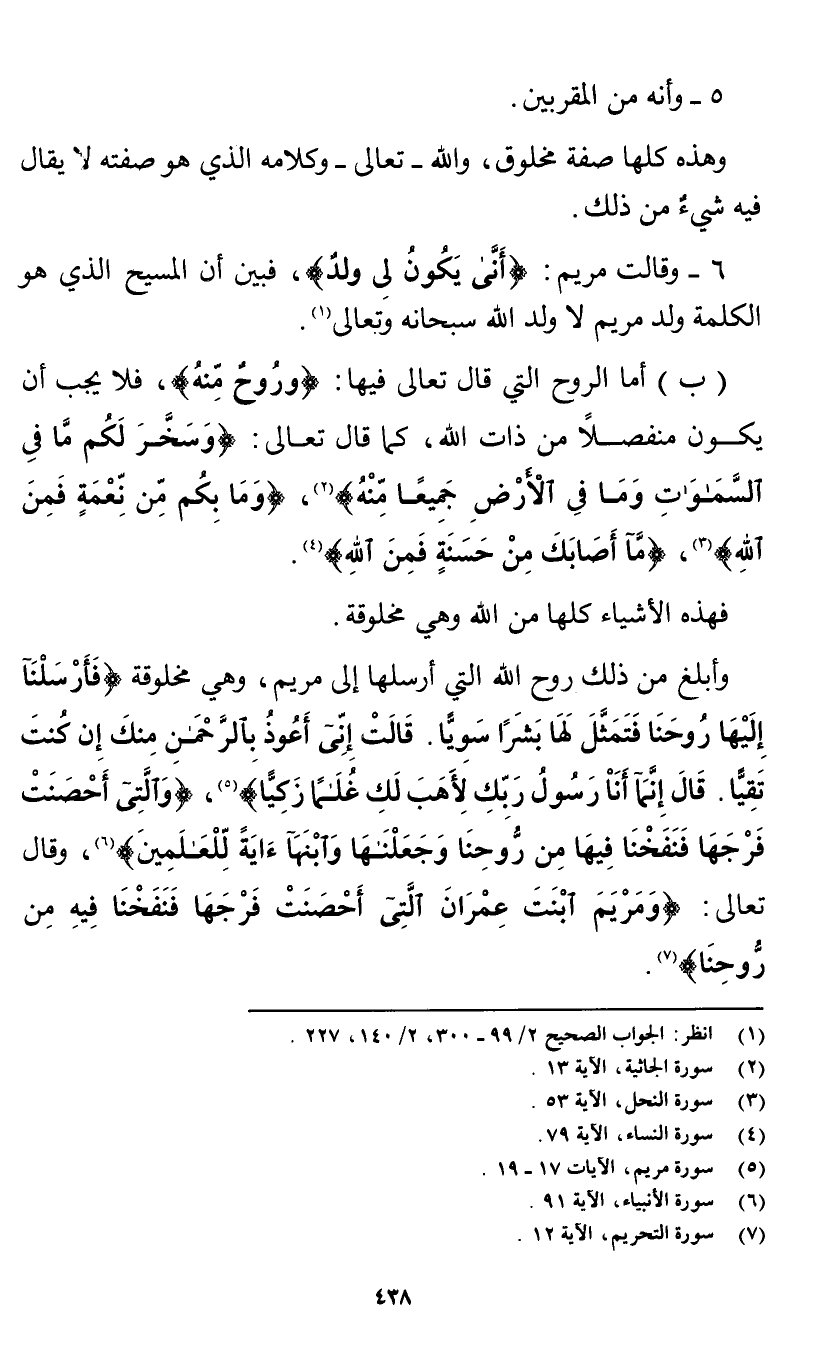 ٥ ـ وأنه من المقربين .
وهذه كلها صفة مخلوق، والله ـ تعالى ـ وكلامه الذي هو صفته لا يقال
فيه شيءٌ من ذلك .
٦ ـ وقالت مريم: ﴿أَنَّىٰ يَكُونُ لِى ولدٌ﴾، فبين أن المسيح الذي هو
الكلمة ولد مريم لا ولد الله سبحانه وتعالى(١) .
( ب ) أما الروح التي قال تعالى فيها: ﴿ورُوحٌ مِّنهُ﴾، فلا يجب أن
يكون منفصلاً من ذات الله، كما قال تعالى: ﴿وَسَخَّرَ لَكُم مَّا فِى
ٱلسَّمَـٰوَٰتِ وَمَا فِى ٱلْأَرْضِ جَمِيعًا مِّنْهُ﴾(٢)، ﴿وَمَا بِكُم مِّن نِّعْمَةٍ فَمِنَ
ٱللهِ﴾(٣)، ﴿مَّآ أَصَابَكَ مِنْ حَسَنَةٍ فَمِنَ ٱللهِ﴾(٤) .
فهذه الأشياء كلها من الله وهي مخلوقة .
وأبلغ من ذلك روح الله التي أرسلها إلى مريم، وهي مخلوقة ﴿فَأَرْسَلْنَآ
إِلَيْهَا رُوحَنَا فَتَمَثَّلَ لَهَا بَشَرًا سَوِيًّا. قَالَتْ إِنِّىٓ أَعُوذُ بِٱلرَّحْمَـٰنِ مِنكَ إِن كُنتَ
تَقِيًّا. قَالَ إِنَّمَآ أَنَا۠ رَسُولُ رَبِّكِ لِأَهَبَ لَكِ غُلَـٰمًا زَكِيًّا﴾(٥)، ﴿وَٱلَّتِىٓ أَحْصَنَتْ
فَرْجَهَا فَنَفَخْنَا فِيهَا مِن رُّوحِنَا وَجَعَلْنَـٰهَا وَٱبْنَهَآ ءَايَةً لِّلْعَـٰلَمِينَ﴾(٦)، وقال
تعالى: ﴿وَمَرْيَمَ ٱبْنَتَ عِمْرَانَ ٱلَّتِىٓ أَحْصَنَتْ فَرْجَهَا فَنَفَخْنَا فِيهِ مِن
رُّوحِنَا﴾(٧) .
(١) انظر: الجواب الصحيح ٢/ ٩٩ ـ ٣٠٠، ٢/ ١٤٠، ٢٢٧ .
(٢) سورة الجاثية، الآية ١٣ .
(٣) سورة النحل، الآية ٥٣ .
(٤) سورة النساء، الآية ٧٩.
(٥) سورة مريم، الآيات ١٧ ـ ١٩ .
(٦) سورة الأنبياء، الآية ٩١ .
(٧) سورة التحريم، الآية ١٢ .
٤٣٨